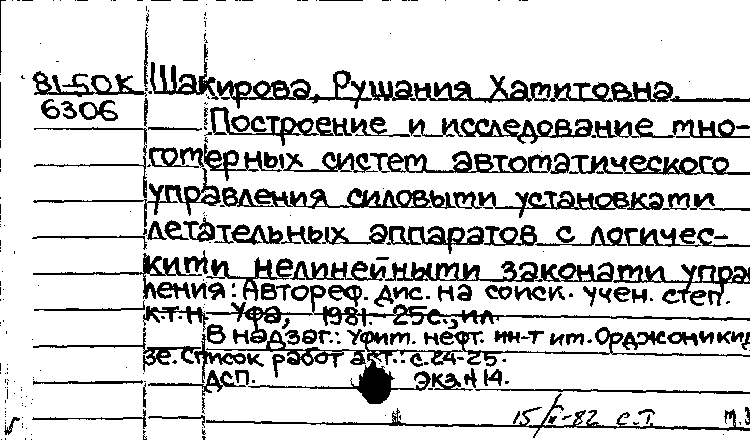 81-50К Шакирова, Рушания Хатитовна.
6306
Построение и исследование мно-
гомерных систем автоматического
управления силовыми установками
летательных аппаратов с логичес-
кими нелинейными законами управ
ления: Автореф. дис. на соиск. учен. степ.
к.т.н. — Уфа, 1981. — 25с., ил.
В надзаг.: Уфим. нефт. ин-т им. Орджоникид
зе. Список работ авт.: с. 24-25.
ДСП. Экз. № 14.
15/II-82 с.т.